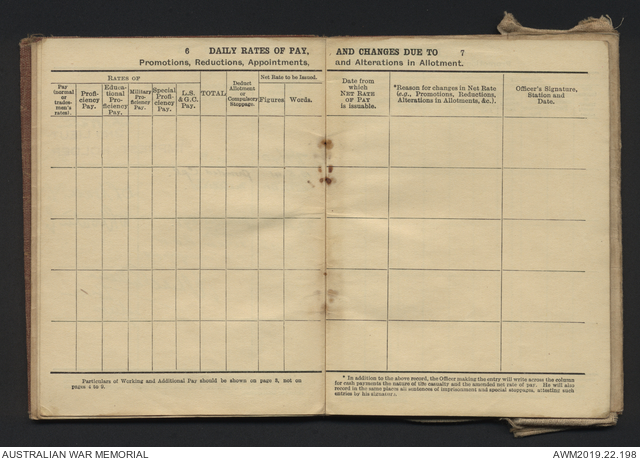 6 DAILY RATES OF PAY,
Promotions, Reductions, Appointments,
RATES OF
Pay
(normal
or
trades-
men's
rates).
Profi-
ciency
Pay.
Educa-
tional
Pro-
ficiency
Pay.
Military
Pro-
ficiency
Pay.
Special
Profi-
ciency
Pay.
L.S.
& G.C.
Pay.
TOTAL
Deduct
Allotment
or
Compulsory
Stoppage.
Net Rate to be Issued.
Figures
Words.
Particulars of Working and Additional Pay should be shown on page 3, not on
pages 4 to 9.
AND CHANGES DUE TO 7
and Alterations in Allotment.
Date from
which
NET RATE
OF PAY
is issuable.
*Reason for changes in Net Rate
(e.g., Promotions, Reductions,
Alterations in Allotments, &c.).
Officer's Signature,
Station and
Date.
* In addition to the above record, the Officer making the entry will write across the column
for cash payments the nature of the casualty and the amended net rate of pay. He will also
record in the same places all sentences of imprisonment and special stoppages, attesting such
entries by his signature.
AUSTRALIAN WAR MEMORIAL
AWM2019.22.198